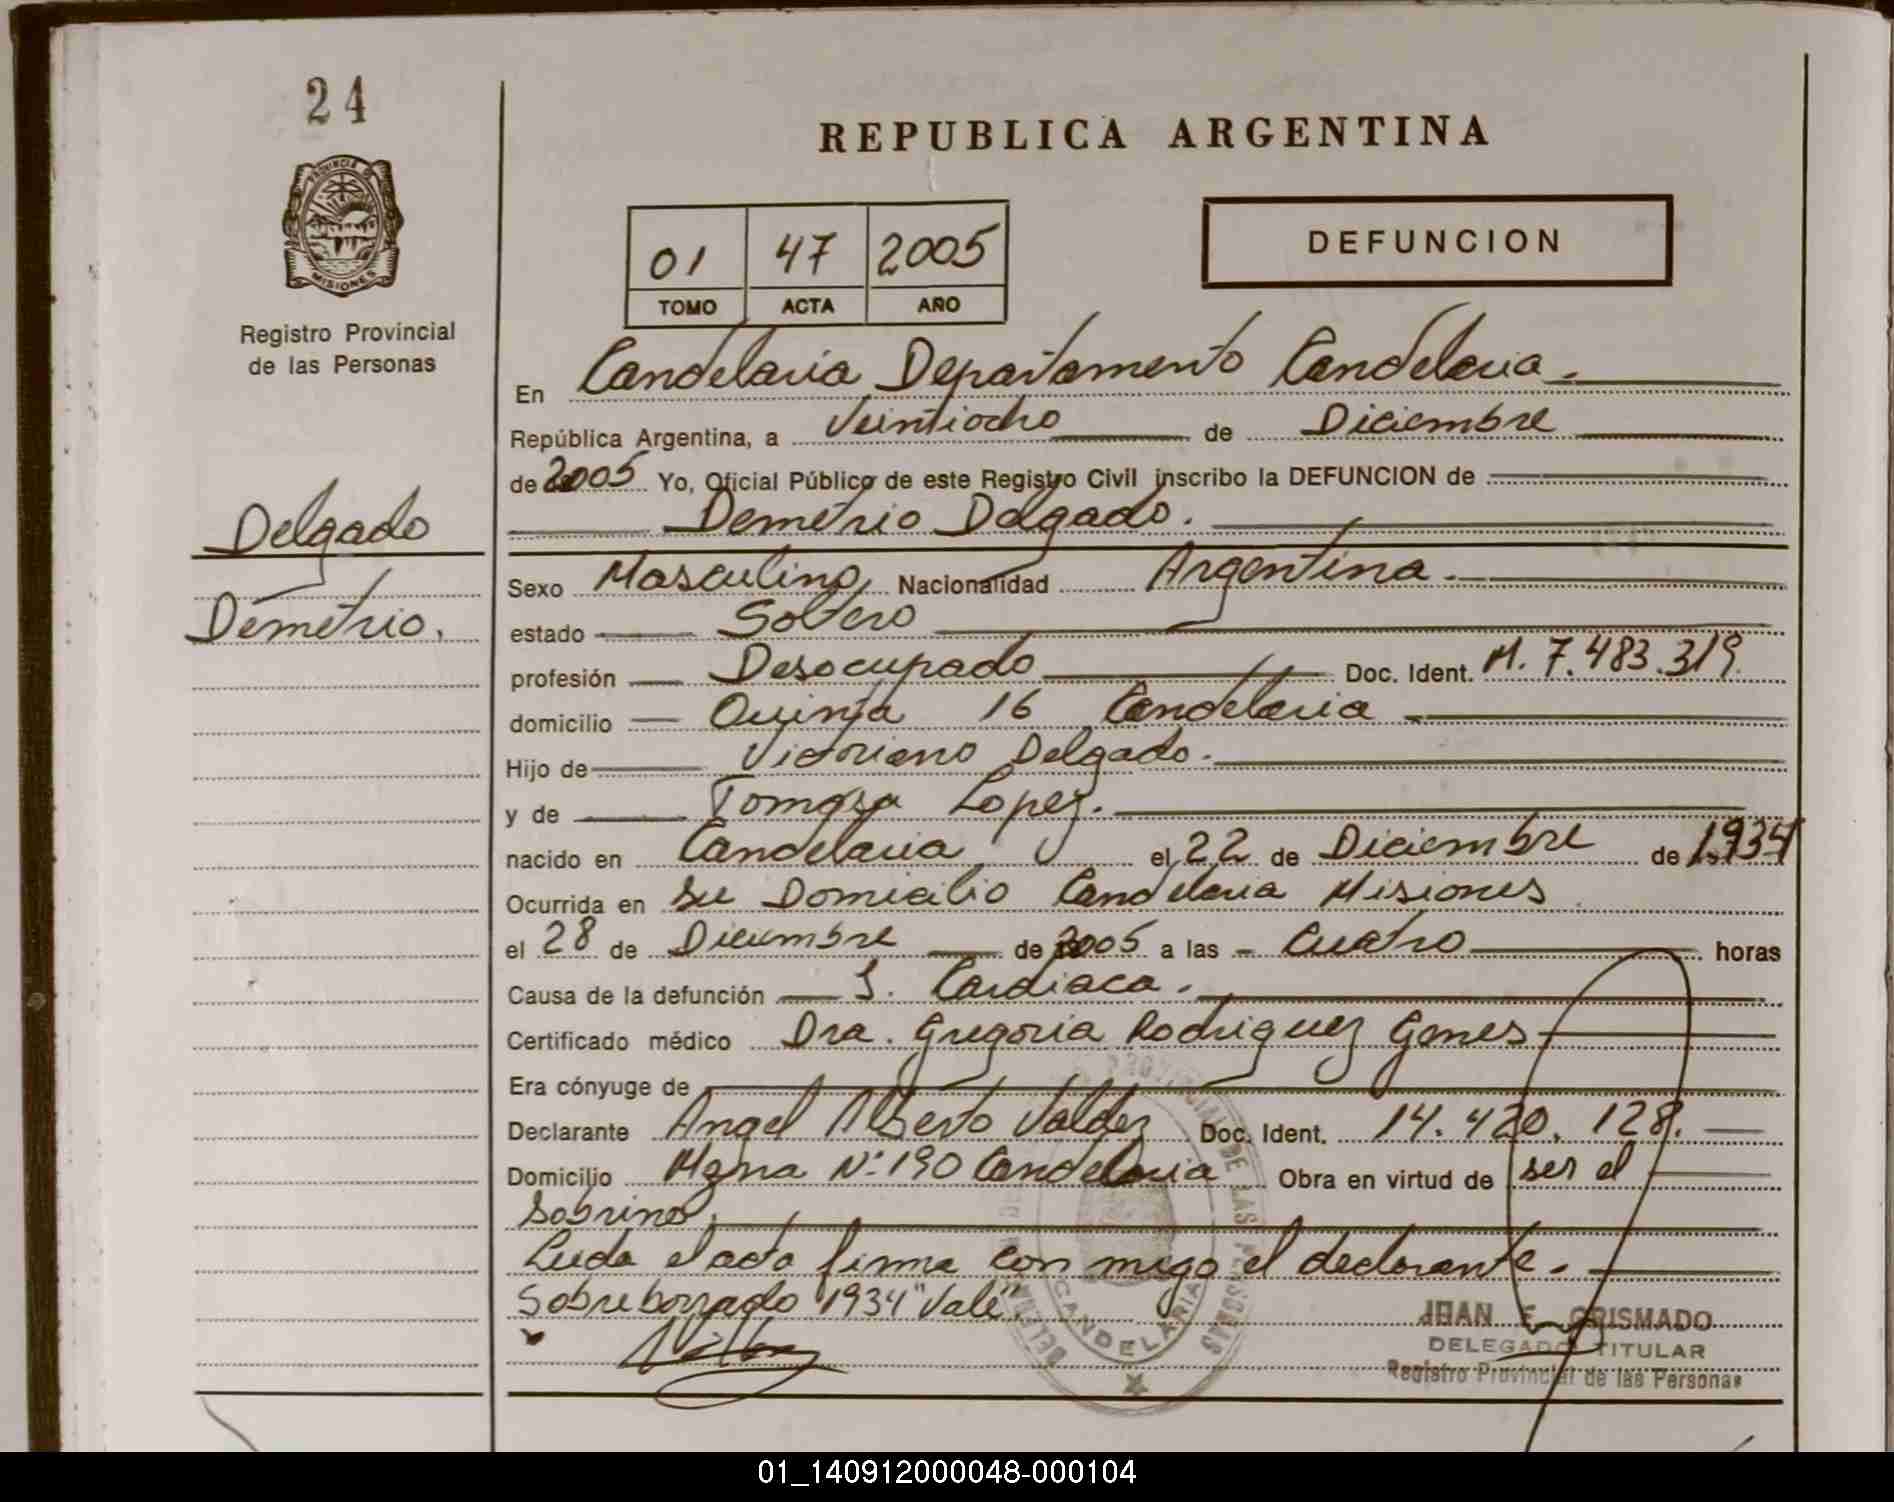 24
PROVINCIA DE
MISIONES
Registro Provincial
de las Personas
Delgado
Demetrio.
REPUBLICA ARGENTINA
01 47 2005
TOMO ACTA AÑO
DEFUNCION
En Candelaria Departamento Candelaria.
República Argentina, a Veintiocho de Diciembre
de 2005 Yo, Oficial Público de este Registro Civil inscribo la DEFUNCION de
Demetrio Delgado.
Sexo Masculino Nacionalidad Argentina.
estado Soltero
profesión Desocupado Doc. Ident. M. 7.483.319.
domicilio Quinta 16 Candelaria
Hijo de Victoriano Delgado.
y de Tomasa Lopez.
nacido en Candelaria el 22 de Diciembre de 1.934
Ocurrida en su Domicilio Candelaria Misiones
el 28 de Diciembre de 2005 a las Cuatro horas
Causa de la defunción I. Cardiaca.
Certificado médico Dra. Gregoria Rodriguez Gomes
Era cónyuge de
Declarante Angel Alberto Valdez Doc. Ident. 14.420.128.
Domicilio Mzna Nº 190 Candelaria Obra en virtud de ser el
Sobrino
Leida el acta firma con migo el declarante.
Sobreborrado "1934" Vale"
CANDELARIA
JUAN E. GRISMADO
DELEGADO TITULAR
Registro Provincial de las Personas
01_140912000048-000104